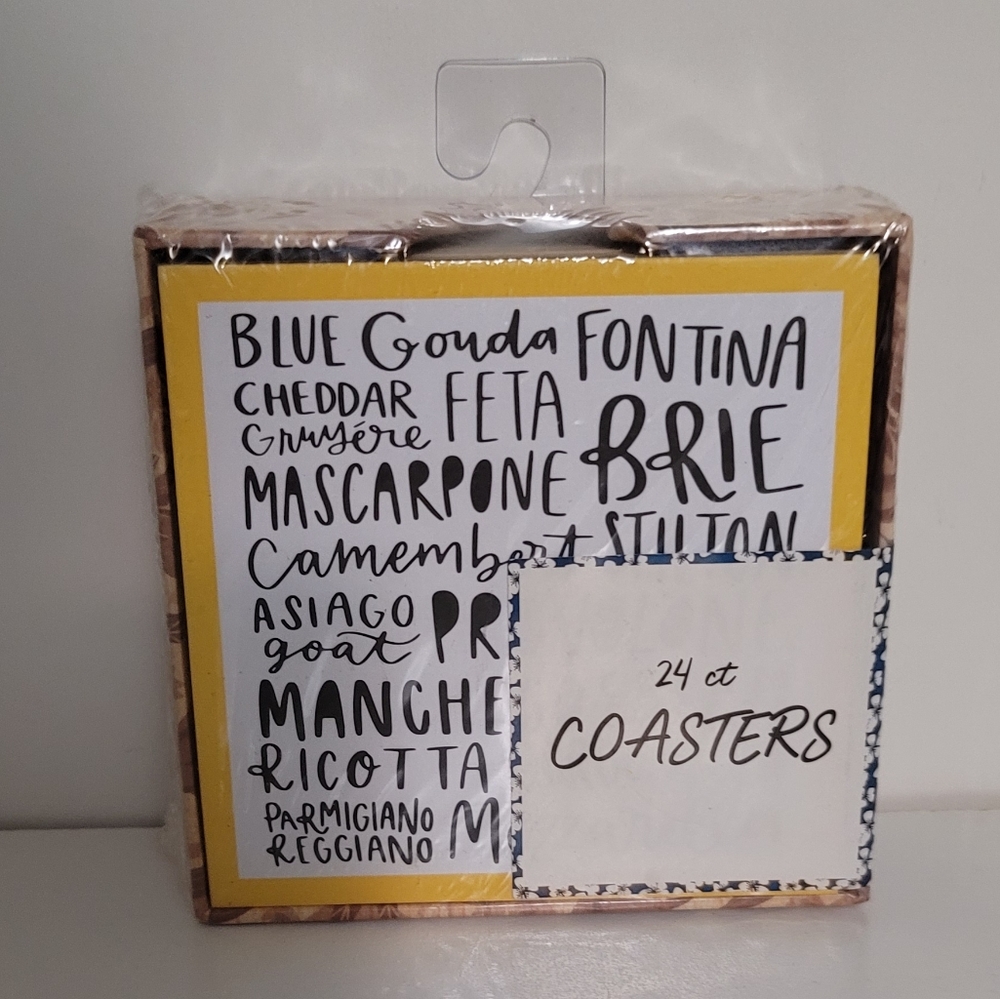 BLUE Gouda FONTINA
CHEDDAR FETA
Gruyére BRIE
MASCARPONE
Camembert STILTON
ASIAGO
goat PR
MANCHE
RICOTTA
PARMIGIANO
REGGIANO M
24 ct
COASTERS